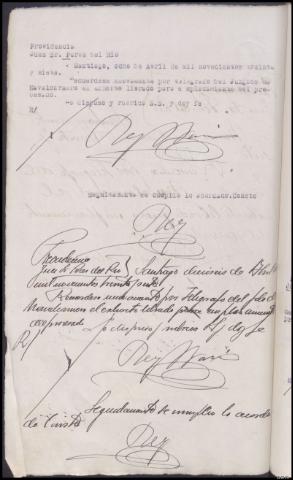 Providencia
Juez Sr. Perez del Rio
Santiago, ocho de Abril de mil novecientos treinta
y siete.
Recuerdese nuevamente por telegrafo del Juzgado de
Navalcarnero el exhorto librado para emplazamiento del pro-
cesado.
Lo dispuso y rubrica S.S. y doy fe
Rey
Seguidamente se cumple lo acordado. Consto
Rey
Providencia
Juez Sr. Perez del Rio Santiago dieciseis de Abril
mil novecientos treinta y siete
Recuerdese nuevamente por telegrafo del Juzdo de
Navalcarnero el exhorto librado para emplazamiento
del procesado
Lo dispuso y rubrica SSª doy fe
Rey
Seguidamente se cumple lo acorda
do Consto
Rey